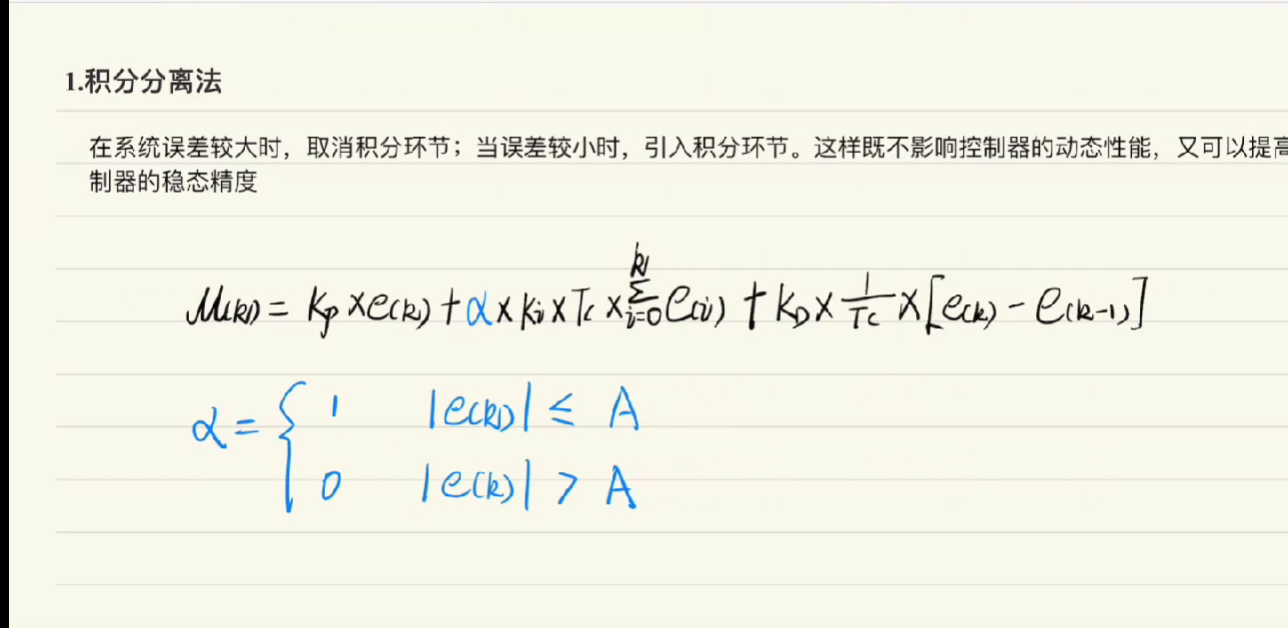 1.积分分离法
在系统误差较大时，取消积分环节；当误差较小时，引入积分环节。这样既不影响控制器的动态性能，又可以提高
制器的稳态精度
u(k) = Kp × e(k) + α × Ki × Tc × Σ_{i=0}^{k} e(i) + KD × 1/Tc × [e(k) - e(k-1)]
α = { 1 |e(k)| ≤ A
0 |e(k)| > A